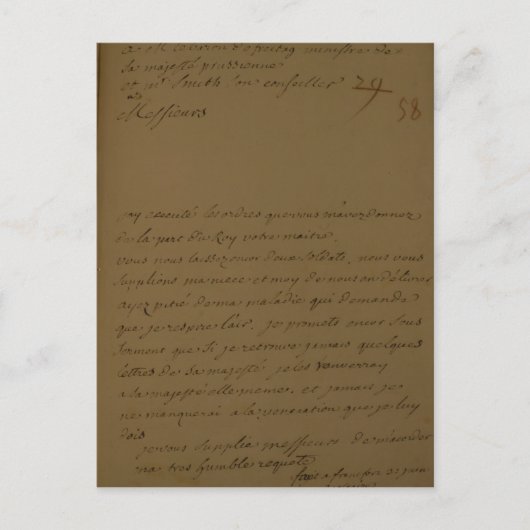 a Mr le baron de freitag ministre de
sa majesté prussienne
et mr Smith son conseiller 29
58
Messieurs
jay executé les ordres que vous m'avez donnez
de la part du Roy votre maitre.
vous nous laissez avoir deux soldats, nous vous
supplions ma niece et moy de nous en délivrer
ayez pitié de ma maladie qui demande
que je respire lair. je promets encor sous
serment que si je retrouve jamais quelques
lettres de sa majesté je les renverray
a sa majesté elle meme, et jamais je
ne manquerai a la veneration que je luy
dois
je vous supplie messieurs de m'acorder
ma tres humble requete
fait a francfort juin